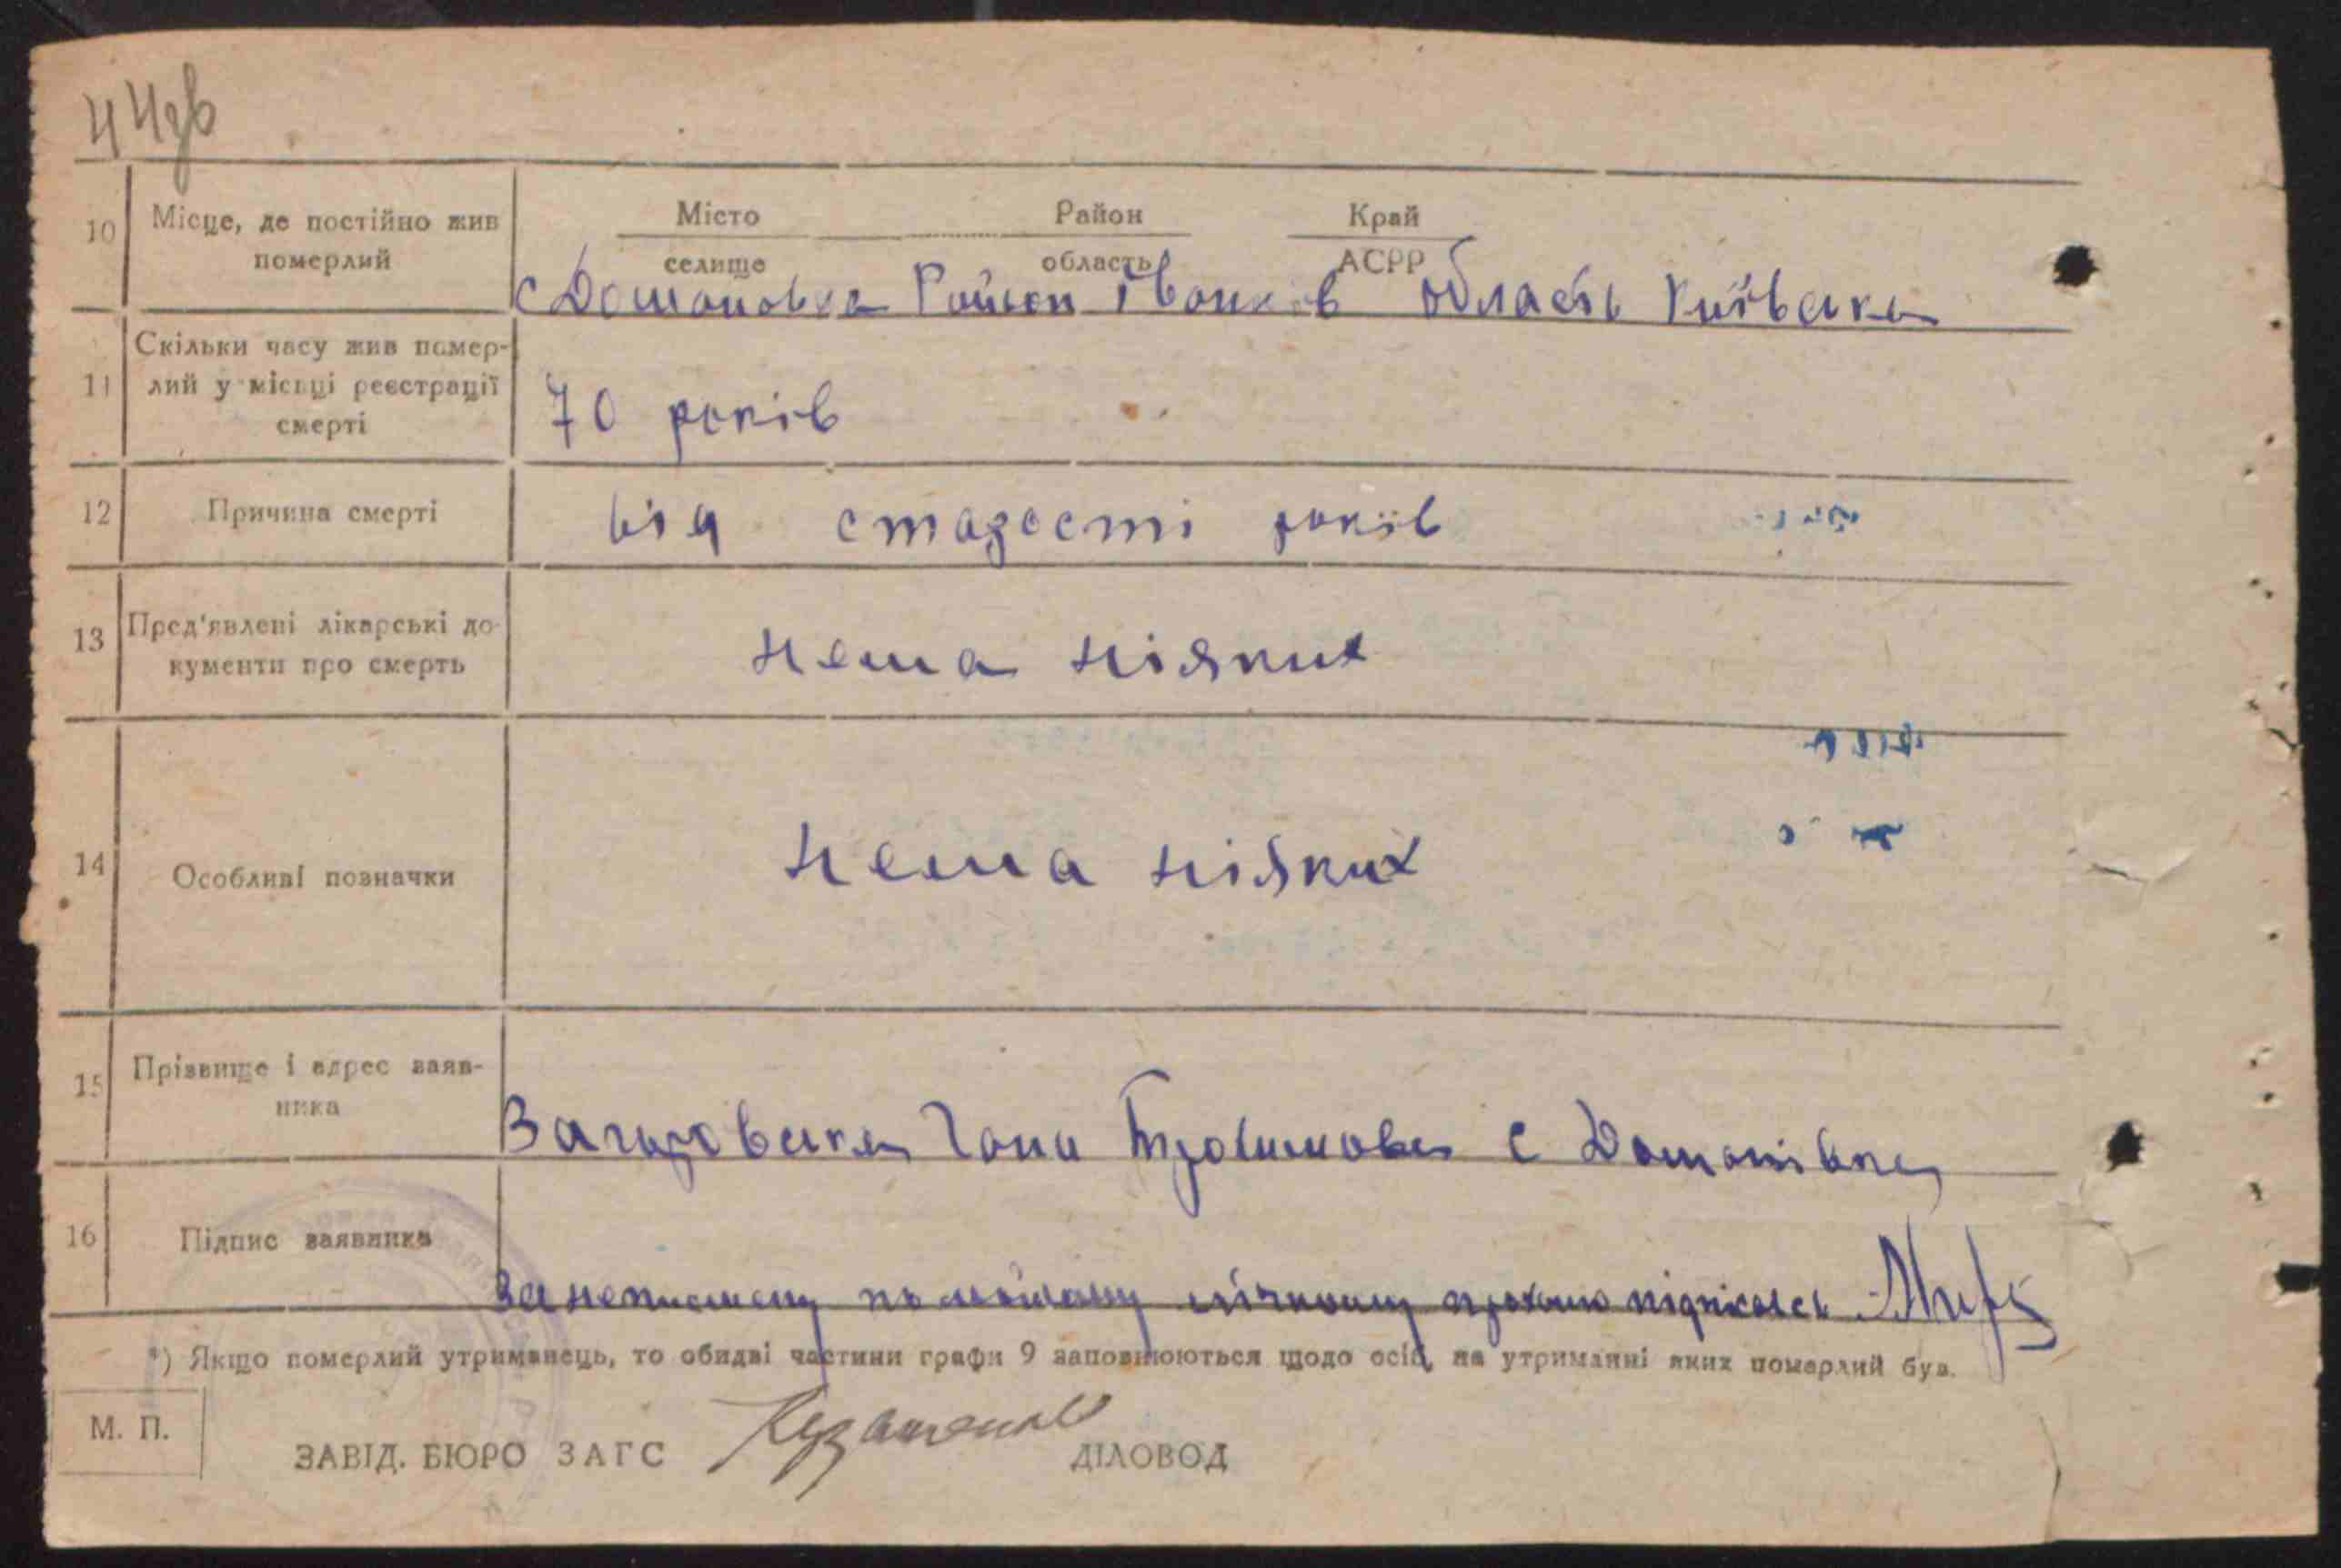 44зв
10 Місце, де постійно жив померлий
Місто Район Край
селище область АСРР
с Домановка Район Іванків область Київська
11 Скільки часу жив помер-
лий у місці реєстрації
смерті
70 років
12 Причина смерті від старості років
13 Пред'явлені лікарські до-
кументи про смерть
нема ніяких
14 Особливі позначки нема ніяких
15 Прізвище і адрес заяв-
ника
Ганна с Доманівка
16 Підпис заявника
за неписьмену прохано підписався
*) Якщо померлий утриманець, то обидві частини графи 9 заповнюються щодо осіб, на утриманні яких померлий був.
М. П.
ЗАВІД. БЮРО ЗАГС ДІЛОВОД